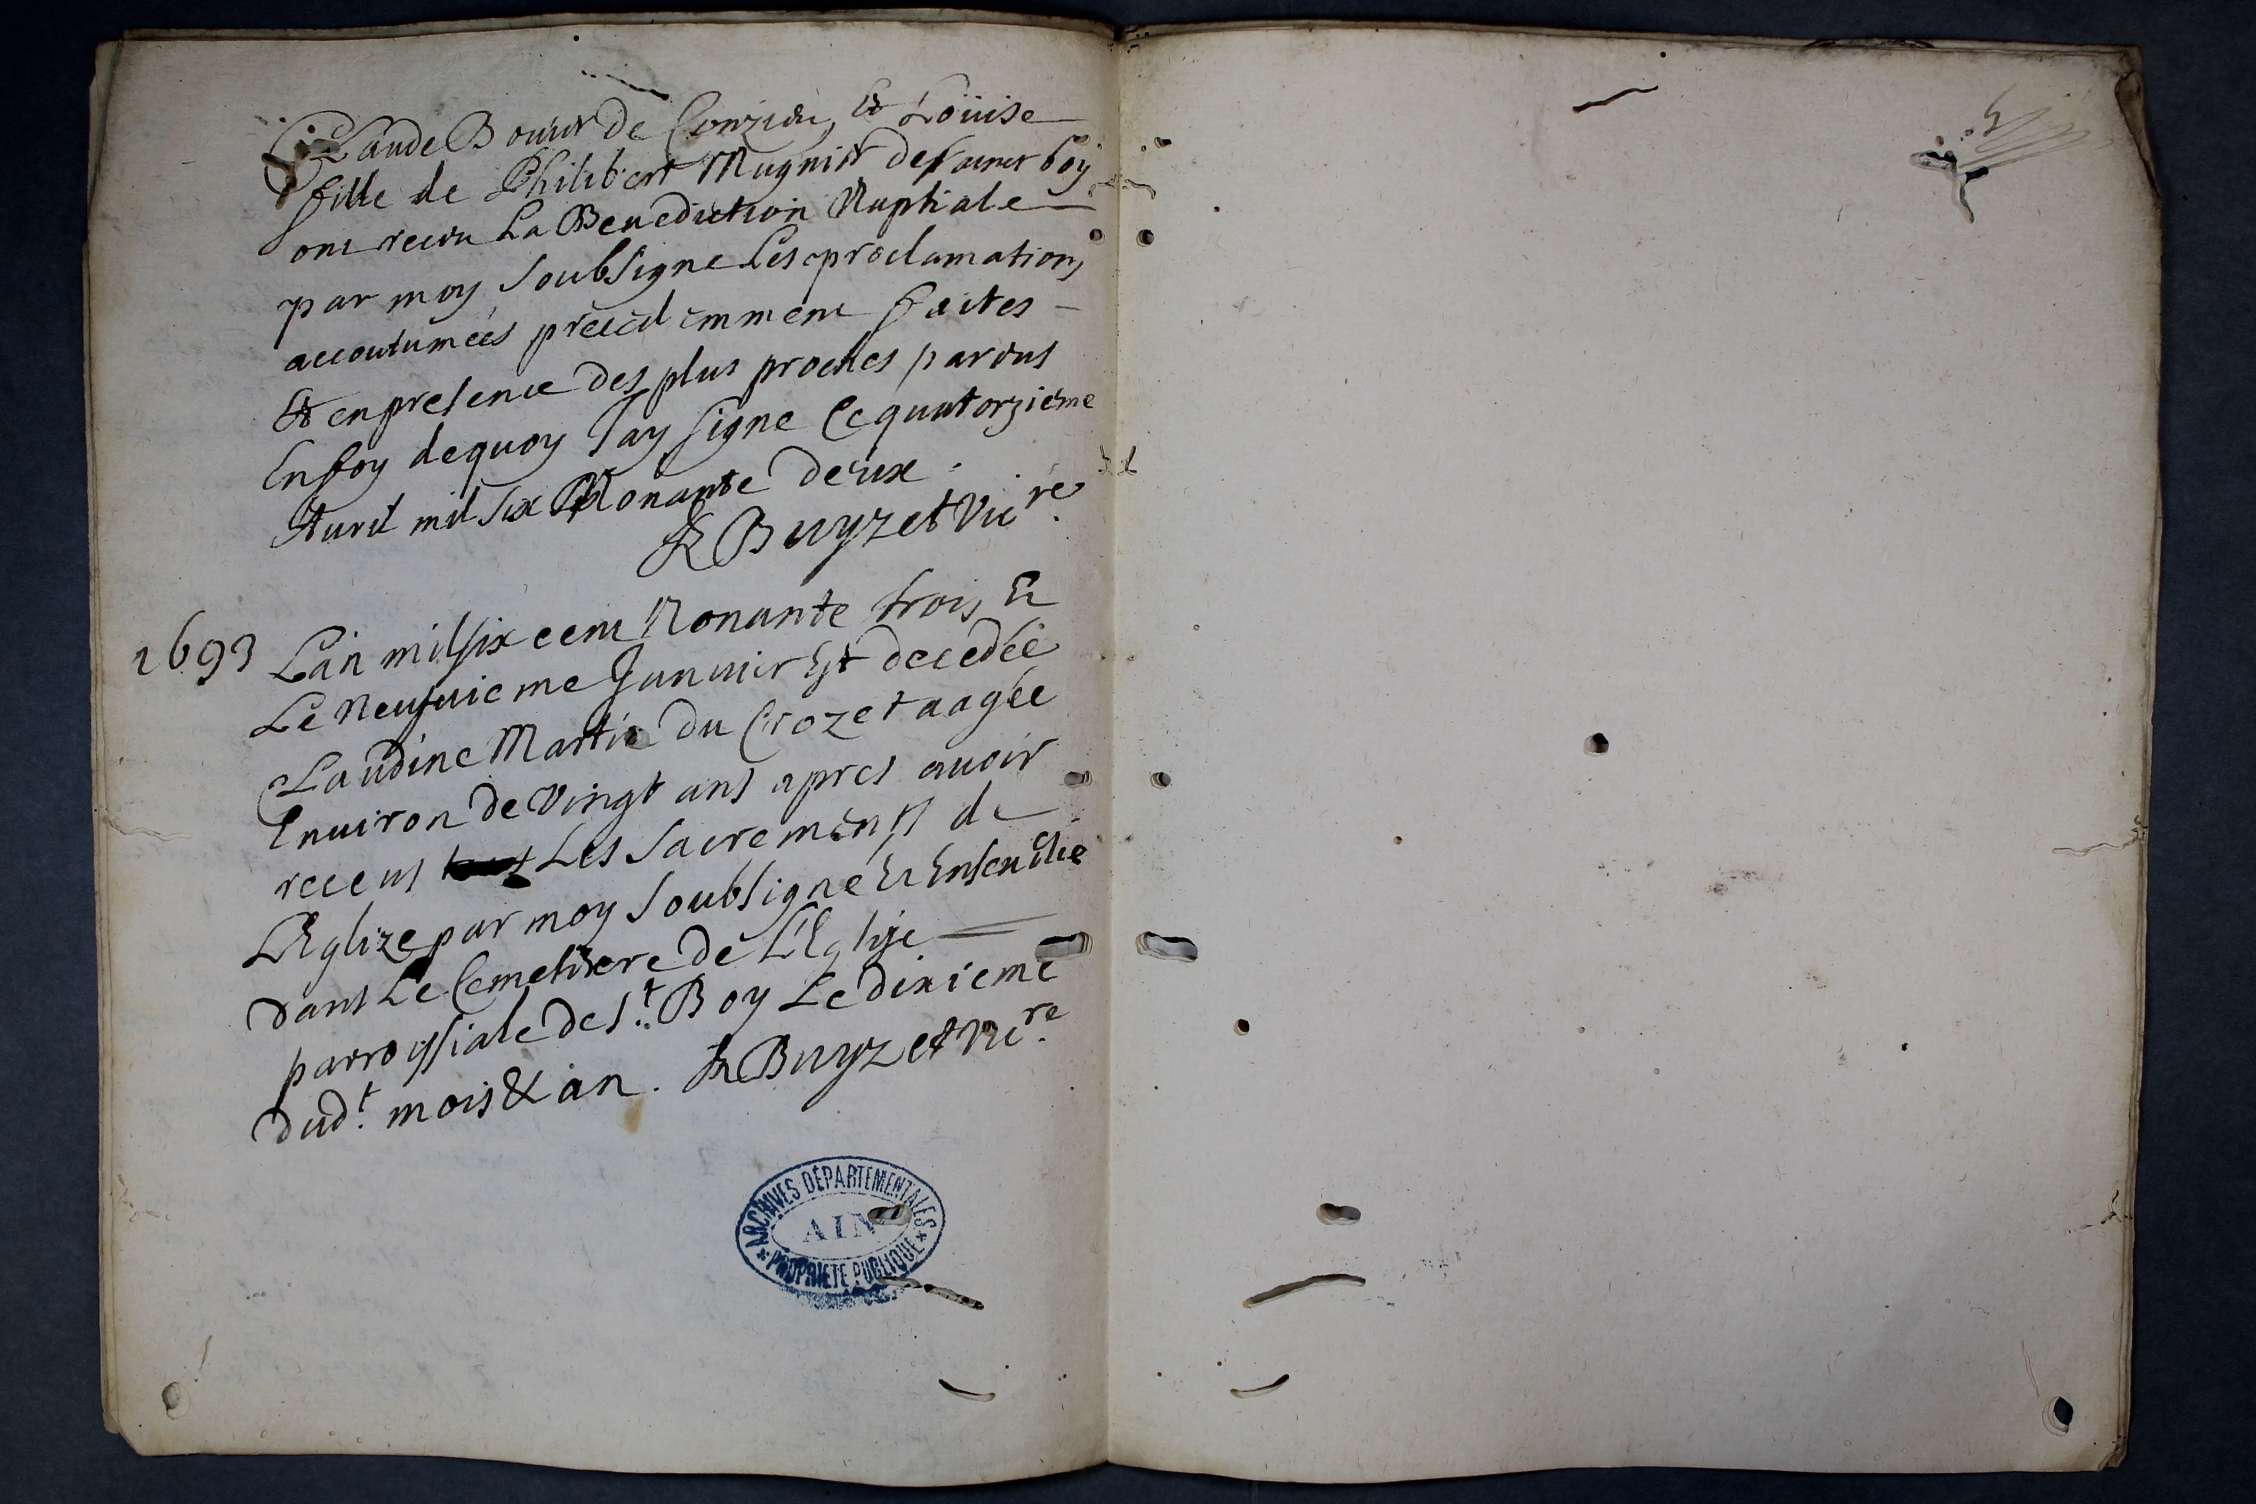 Claude Bouuir de Conzieu, Et Loüise
fille de Philibert Mugnier de sainct boy
ont receu La Benediction Nuptiale
par moy soubsigne Les proclamations
accoutumées précédemment faites
Et en presence des plus proches parens
En foy dequoy Jay signe Ce quatorziéme
Auril mil six Nonante deux.
Buyzet Vicre
1693
Lan mil six cent Nonante trois, Et
Le Neufuieme Januier Est decedée
Claudine Martin du Crozet aagée
Enuiron de Vingt ans apres auoir
receus Les Sacrements de
LEglize par moy soubsigné Et Enseuelie
dans Le Cemetiere de LEglise
parroissiale de St. Boy Le dixieme
dudt. mois & an. Buyzet Vicre.
ARCHIVES DÉPARTEMENTALES
AIN
PROPRIÉTÉ PUBLIQUE